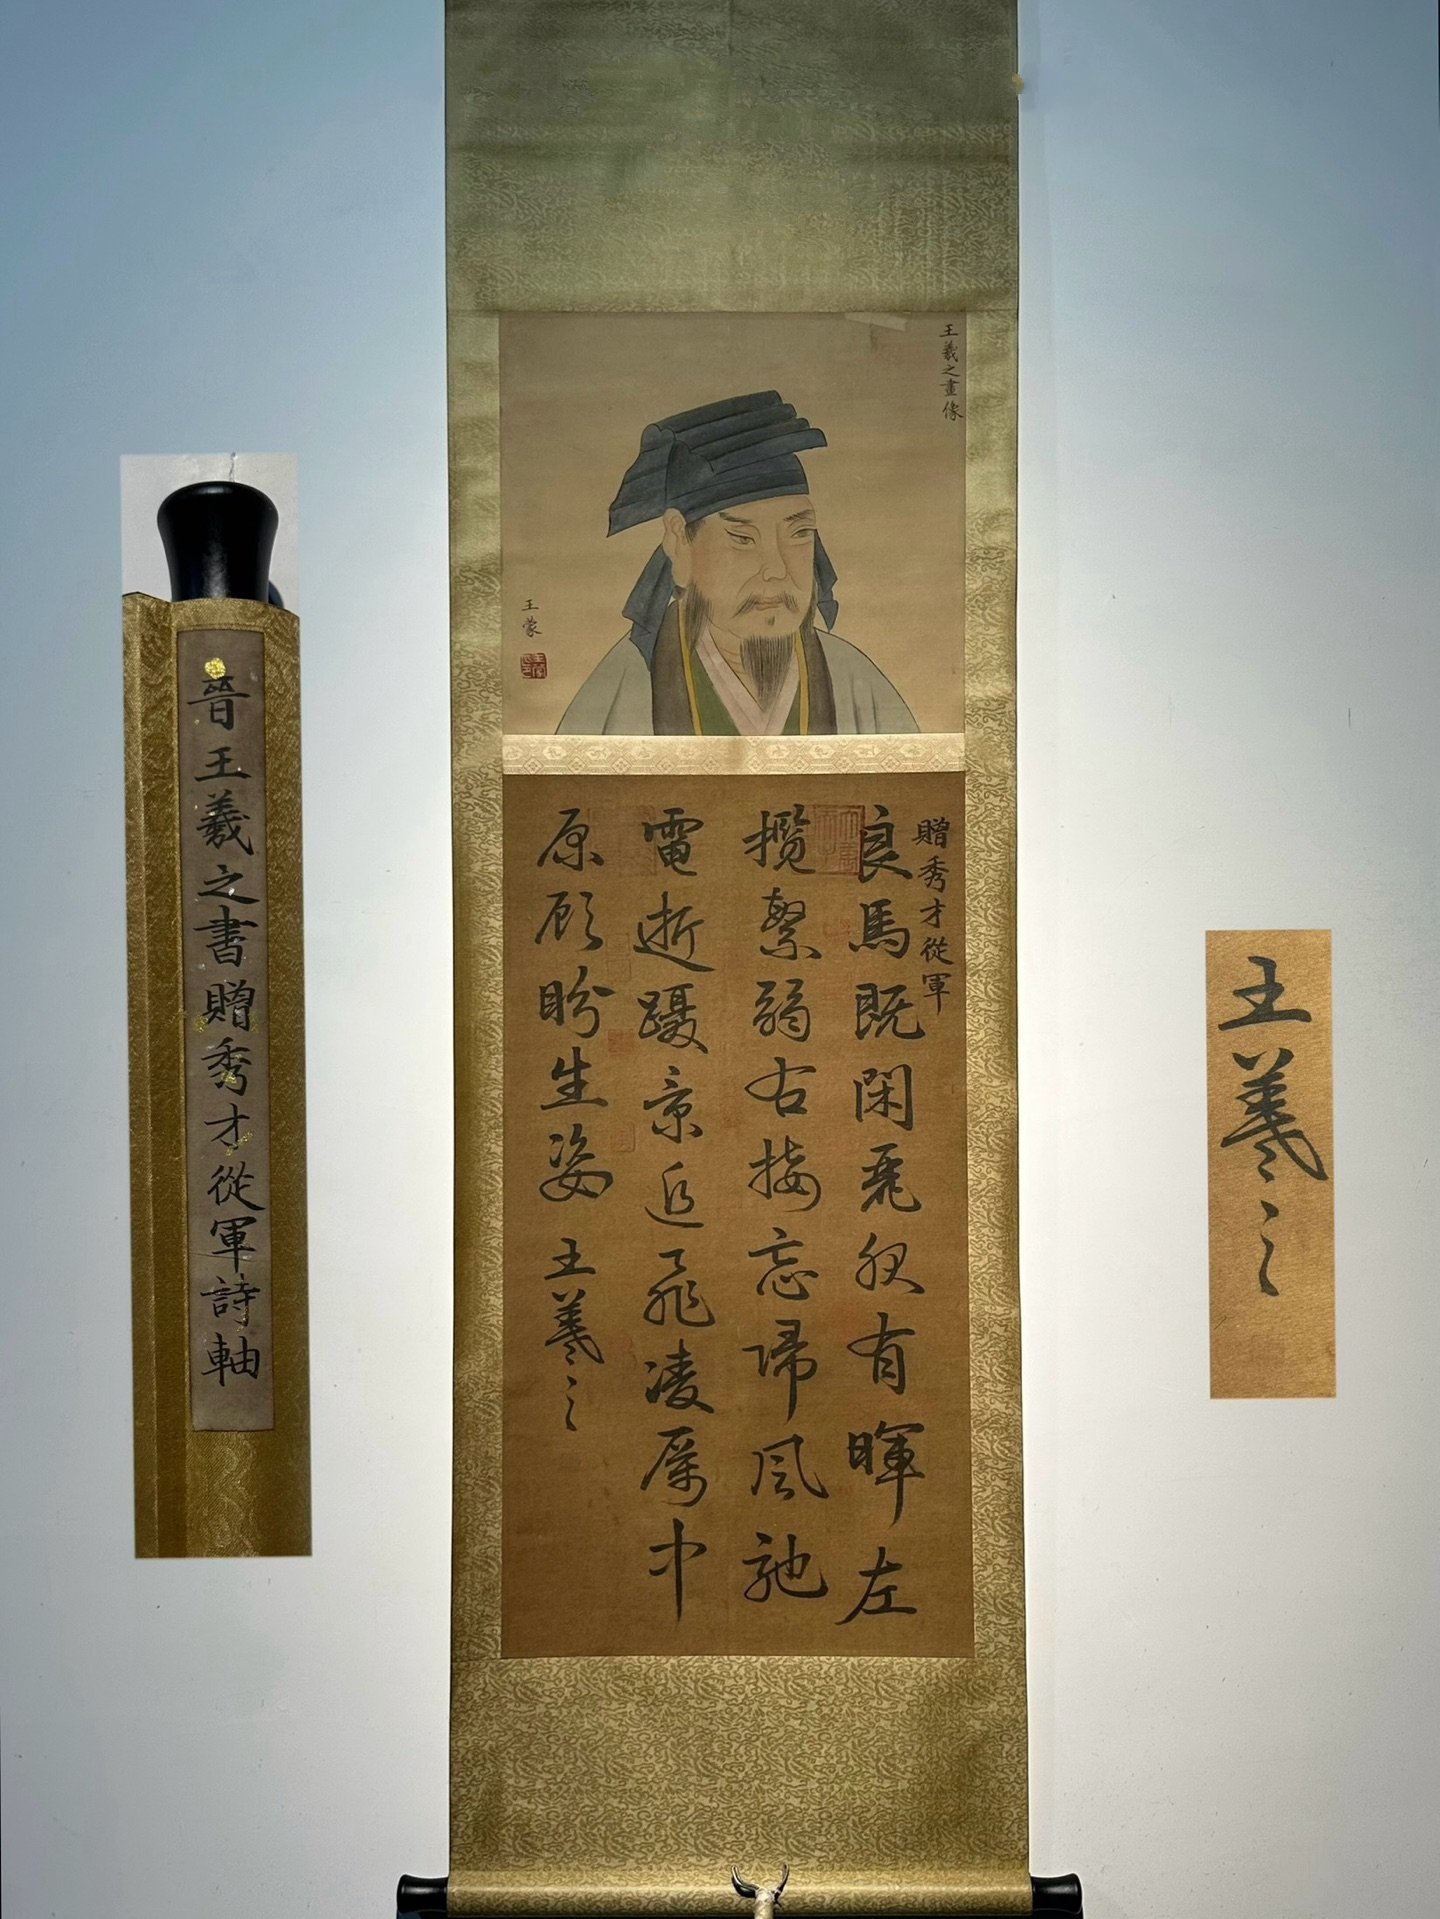 晉王羲之書贈秀才從軍詩軸
王羲之畫像
王蒙
贈秀才從軍
良馬既閑麗服有暉左
攬繁弱右接忘歸風馳
電逝躡景追飛凌厲中
原顧盼生姿 王羲之
王羲之